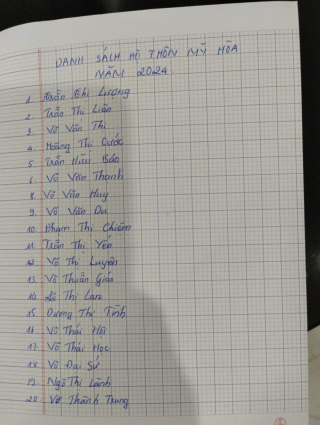 DANH SÁCH HỘ THÔN MỸ HÒA
NĂM 2024.
1. Trần Thị Lượng
2. Trần Thị Liên
3. Võ Văn Thi
4. Hoàng Thị Cước
5. Trần Hữu Báo
6. Võ Văn Thanh
8. Võ Văn Huy
9. Võ Văn Dư
10. Phạm Thị Chiêm
11. Trần Thị Yến
12. Võ Thị Luyện
13. Võ Thuần Giáo
14. Lê Thị Lan
15. Dương Thị Tình
16. Võ Thái Hồi
17. Võ Thái Học
18. Võ Đại Sứ
19. Ngô Thị Lành
20. Võ Thành Trung